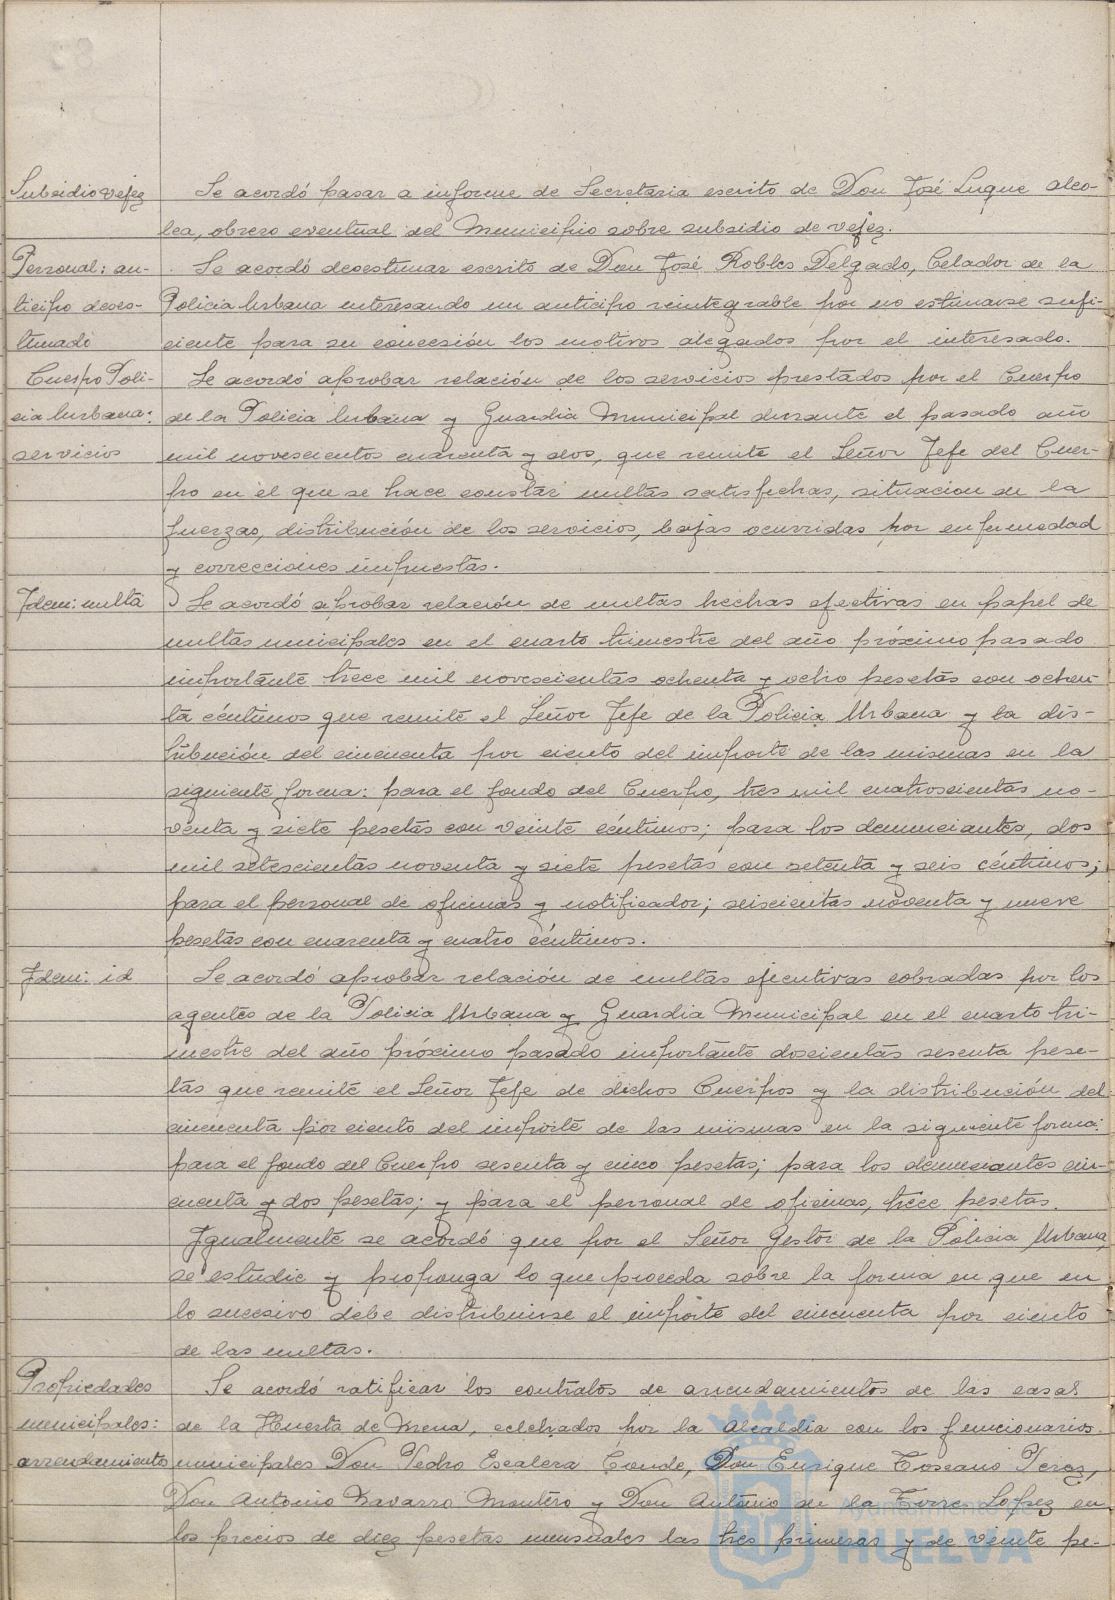 Subsidio vejez
Se acordó pasar a informe de Secretaria escrito de Don José Luque alco-
lea, obrero eventual del Municipio sobre subsidio de vejez.
Personal: an-
ticipo deses-
timado
Se acordó desestimar escrito de Don José Robles Delgado, Celador de la
Policia Urbana interesando un anticipo reintegrable por no estimarse sufi-
ciente para su concesión los motivos alegados por el interesado.
Cuerpo Poli-
cia Urbana:
servicios
Se acordó aprobar relación de los servicios prestados por el Cuerpo
de la Policia Urbana y Guardia Municipal durante el pasado año
mil novescientos cuarenta y dos, que remite el Señor Jefe del Cuer-
po en el que se hace constar multas satisfechas, situacion de la
fuerzas, distribución de los servicios, bajas ocurridas por enfermedad
y correcciones impuestas.
Idem: multa
Se acordó aprobar relación de multas hechas efectivas en papel de
multas municipales en el cuarto trimestre del año próximo pasado
importante trece mil novescientas ochenta y ocho pesetas con ochen-
ta céntimos que remite el Señor Jefe de la Policia Urbana y la dis-
tribución del cincuenta por ciento del importe de las mismas en la
siguiente forma: para el fondo del Cuerpo, tres mil cuatroscientas no-
venta y siete pesetas con veinte céntimos; para los denunciantes, dos
mil setescientas noventa y siete pesetas con setenta y seis céntimos;
para el personal de oficinas y notificador; seiscientas noventa y nueve
pesetas con cuarenta y cuatro céntimos.
Idem: id
Se acordó aprobar relación de multas ejecutivas cobradas por los
agentes de la Policia Urbana y Guardia Municipal en el cuarto tri-
mestre del año próximo pasado importante doscientas sesenta pese-
tas que remite el Señor Jefe de dichos Cuerpos y la distribución del
cincuenta por ciento del importe de las mismas en la siguiente forma:
para el fondo del Cuerpo sesenta y cinco pesetas; para los denunciantes cin-
cuenta y dos pesetas; y para el personal de oficinas, trece pesetas.
Igualmente se acordó que por el Señor Gestor de la Policia Urbana,
se estudie y proponga lo que proceda sobre la forma en que en
lo sucesivo debe distribuirse el importe del cincuenta por ciento
de las multas.
Propiedades
municipales:
arrendamiento
Se acordó ratificar los contratos de arrendamientos de las casas
de la Huerta de Mena, celebrados por la Alcaldia con los funcionarios
municipales Don Pedro Escalera Conde, Don Enrique Toscano Perez,
Don Antonio Navarro Montero y Don Antonio de la Torre Lopez en
los precios de diez pesetas mensuales las tres primeras y de veinte pe-
Ayuntamiento de
HUELVA